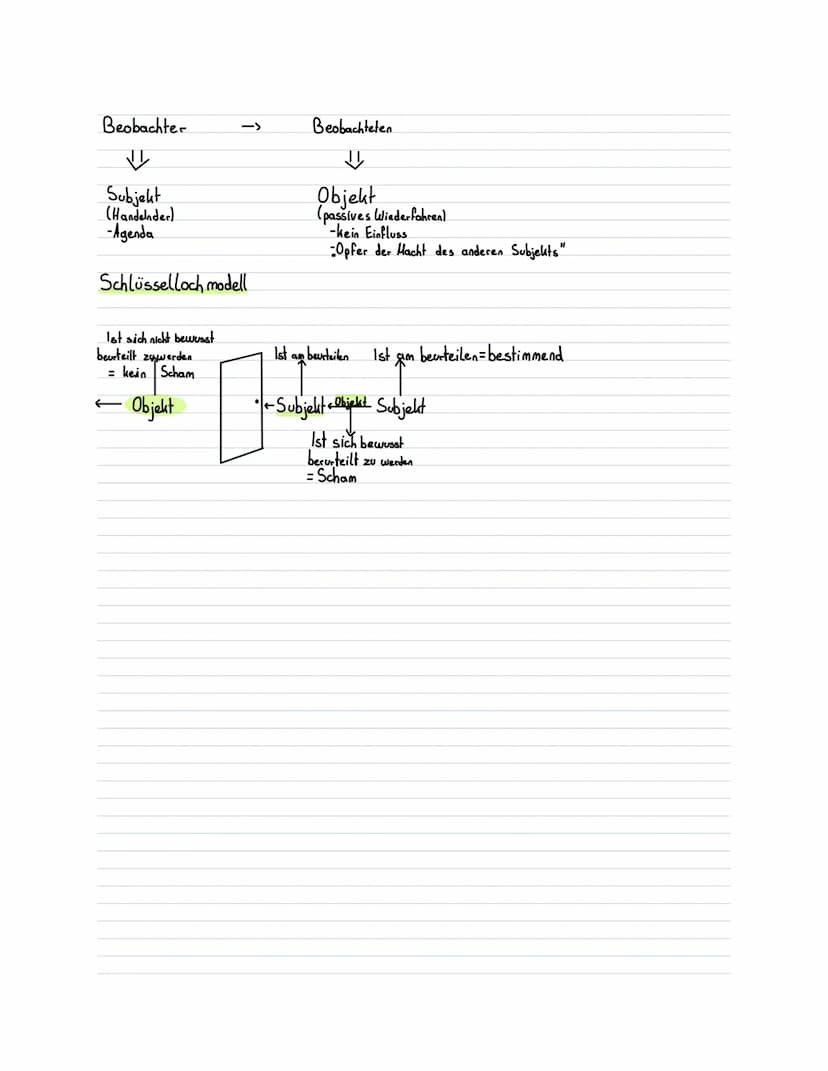 Beobachter -> Beobachteten
Subjekt Objekt
(Handelnder) (passives Wiederfahren)
-Agenda -kein Einfluss
-"Opfer der Macht des anderen Subjekts"
Schlüssellochmodell
Ist sich nicht bewusst
beurteilt zu werden Ist am beurteilen Ist am beurteilen=bestimmend
= kein Scham
← Objekt ←Subjekt ← Objekt Subjekt
Ist sich bewusst
berurteilt zu werden
= Scham